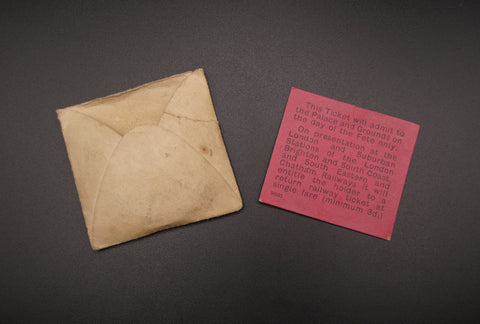 This Ticket will admit to
the Palace and Grounds on
the day of the Fete only.
On presentation at the
London and Suburban
Stations of the London
Brighton and South Coast
and South Eastern and
Chatham Railways it will
entitle the holder to a
return railway ticket at
single fare (minimum 3d.)